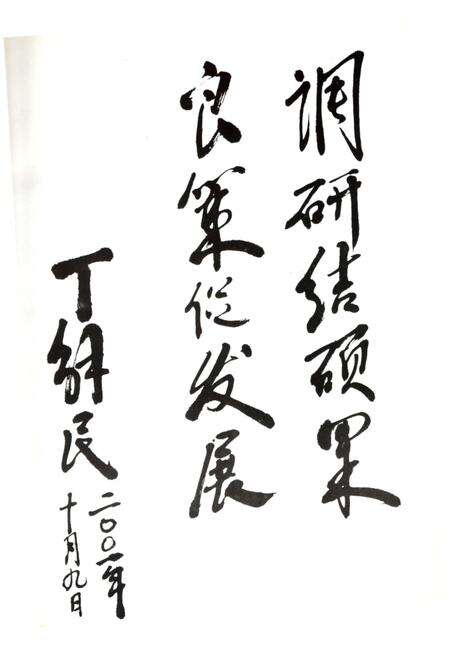 调研结硕果
良策促发展
丁解民
二〇〇一年
十月九日